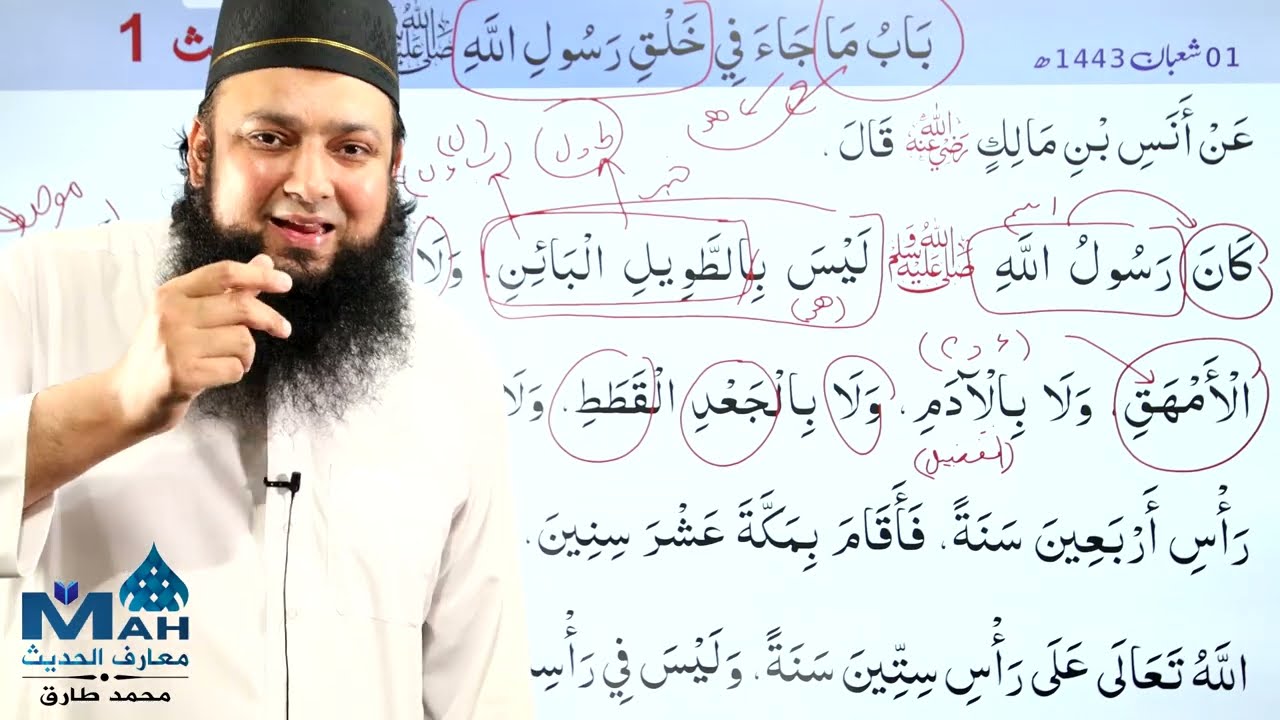 01 شعبان 1443ھ
بَابُ مَا جَاءَ فِي خَلْقِ رَسُولِ اللَّهِ ﷺ
ث 1
عَنْ أَنَسِ بْنِ مَالِكٍ رَضِيَ اللهُ عَنْهُ قَالَ .
اسم
طول
هو
كَانَ رَسُولُ اللَّهِ ﷺ لَيْسَ بِالطَّوِيلِ الْبَائِنِ، وَلَا
(هو)
الْأَمْهَقِ، وَلَا بِالْآدَمِ، وَلَا بِالْجَعْدِ الْقَطَطِ، وَلَا
رَأْسِ أَرْبَعِينَ سَنَةً، فَأَقَامَ بِمَكَّةَ عَشْرَ سِنِينَ،
اللَّهُ تَعَالَى عَلَى رَأْسِ سِتِّينَ سَنَةً، وَلَيْسَ فِي رَأْسِ
MAH
معارف الحديث
محمد طارق